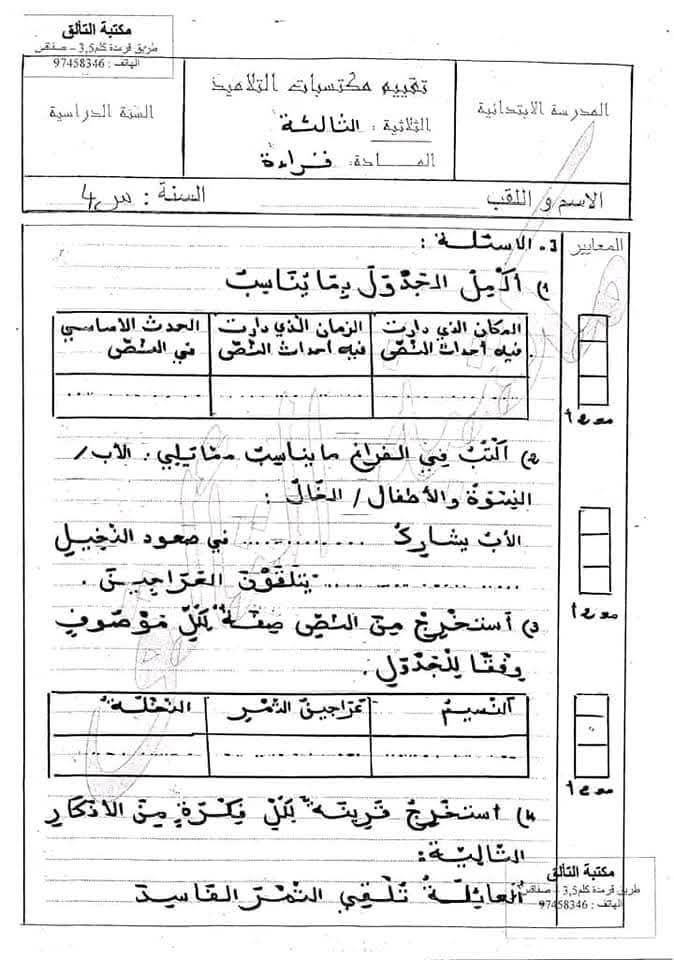 مكتبة التألق
طريق قرمدة كلم3,5 – صفاقس
الهاتف : 97458346
المدرسة الابتدائية
تقييم مكتسبات التلاميذ
الثلاثية : الثالثة
المادة: قراءة
السنة الدراسية
الاسم و اللقب
السنة : س4
المعايير
I. الاسئلة :
1) أكْمِلْ الجَدْوَلَ بِمَا يُنَاسِبُ
المكان الذي دارت فيه أحداث النّصّ
الزمان الّذي دارت فيه أحداث النّصّ
الحدث الأساسي في النّصّ
مع1
2) اكْتُبْ فِي الفراغ ما يناسبُ ممّا يلي : الأب /
النِسْوَة والأطفال / الخَال :
الأبُ يشاركُ ............ في صعود النّخيل
............ يَتَلَقَّوْنَ العَرَاجِينَ .
مع1
3) أستخْرِجُ مِنَ النّصّ صِفَةً لِكُلِّ مَوْصُوفٍ
وِفْقًا لِلْجَدْوَلِ .
النّسيمُ
عَرَاجِينُ الثّمْرِ
النّخلةُ
مع1
4) أستخْرِجُ قَرِينَةً لِكُلِّ فِكْرَةٍ مِنَ الأفْكَارِ
التّاليَةِ :
العائِلَةُ تُلْقِي الثّمْرَ الفَاسِدَ
مكتبة التألق
طريق قرمدة كلم3,5 – صفاقس
الهاتف : 97458346